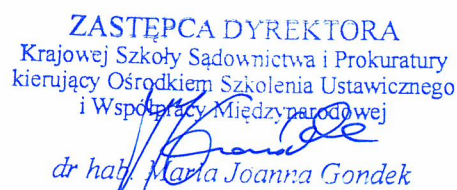 ZASTĘPCA DYREKTORA
Krajowej Szkoły Sądownictwa i Prokuratury
kierujący Ośrodkiem Szkolenia Ustawicznego
i Współpracy Międzynarodowej
dr hab. Maria Joanna Gondek